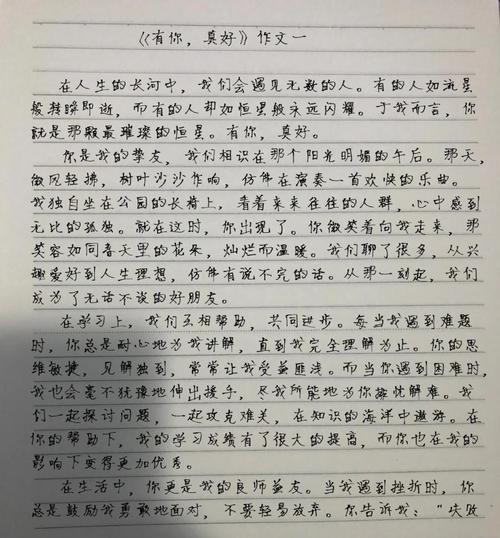 《有你，真好》作文一
在人生的长河中，我们会遇见无数的人。有的人如流星
般转瞬即逝，而有的人却如恒星般永远闪耀。于我而言，你
就是那颗最璀璨的恒星。有你，真好。
你是我的挚友，我们相识在那个阳光明媚的午后。那天，
微风轻拂，树叶沙沙作响，仿佛在演奏一首欢快的乐曲。
我独自坐在公园的长椅上，看着来来往往的人群，心中感到
无比的孤独。就在这时，你出现了。你微笑着向我走来，那
笑容如同春天里的花朵，灿烂而温暖。我们聊了很多，从兴
趣爱好到人生理想，仿佛有说不完的话。从那一刻起，我们
成为了无话不谈的好朋友。
在学习上，我们互相帮助，共同进步。每当我遇到难题
时，你总是耐心地为我讲解，直到我完全理解为止。你的思
维敏捷，见解独到，常常让我受益匪浅。而当你遇到困难时，
我也会毫不犹豫地伸出援手，尽我所能地为你排忧解难。我
们一起探讨问题，一起攻克难关，在知识的海洋中遨游。在
你的帮助下，我的学习成绩有了很大的提高，而你也在我的
影响下变得更加优秀。
在生活中，你更是我的良师益友。当我遇到挫折时，你
总是鼓励我勇敢地面对，不要轻易放弃。你告诉我：“失败